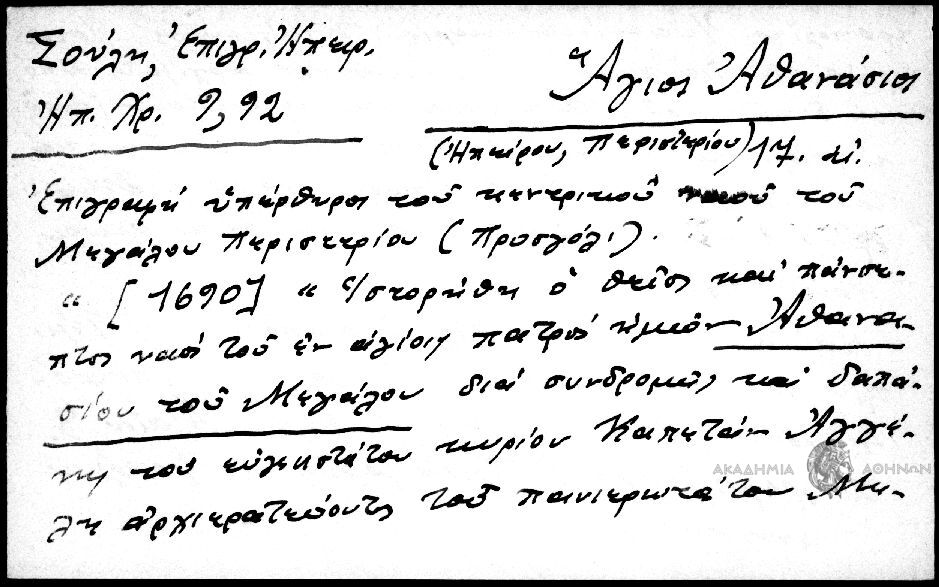 Σούλη, Ἐπιγρ. Ἠπειρ.
Ἠπ. Χρ. 9, 92
Ἅγιος Ἀθανάσιος
(Ἠπείρου, Περιστερίου) 17. αἰ.
Ἐπιγραφή ὑπέρθυρος τοῦ κεντρικοῦ ναοῦ τοῦ
Μεγάλου Περιστερίου (Προσγόλι).
" [1690] " Ἱστορήθη ὁ θεῖος καί πάνσε-
πτος ναός τοῦ ἐν ἁγίοις πατρός ἡμῶν Ἀθανα-
σίου τοῦ Μεγάλου διά συνδρομῆς καί δαπά-
νης του εὐγενεστάτου κυρίου Καπετάν Ἀγγέ-
λη ἀρχιερατεύοντος τοῦ πανιερωτάτου Με-
ΑΚΑΔΗΜΙΑ ΑΘΗΝΩΝ